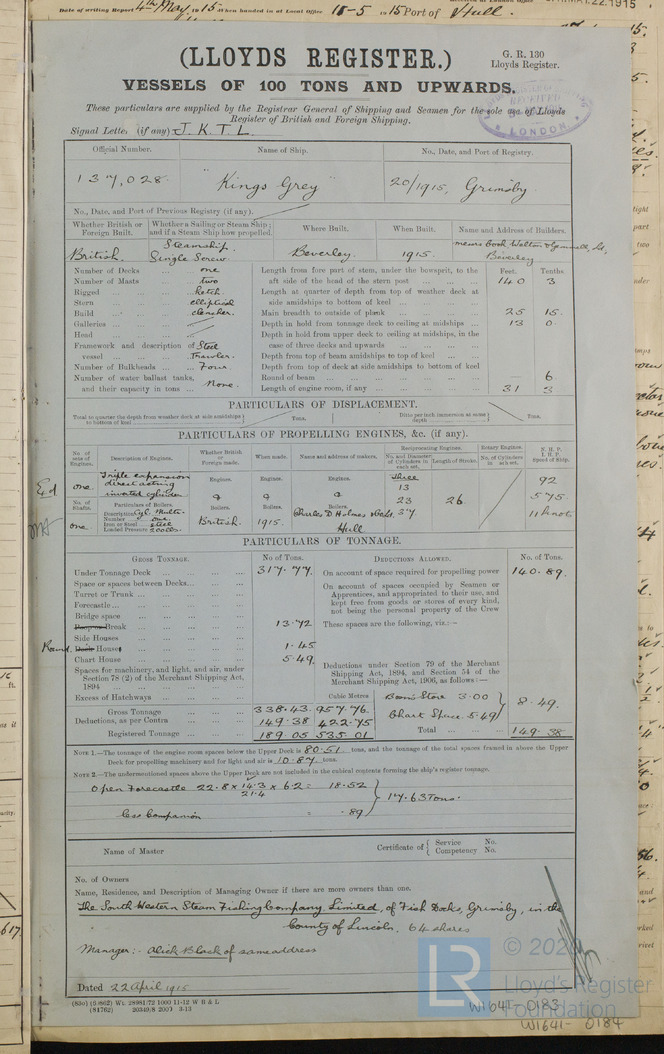 Date of writing Report 4th May 1915 When handed in at Local Office 18-5-1915 Port of Hull.
(LLOYDS REGISTER.)
G. R. 130
Lloyds Register.
VESSELS OF 100 TONS AND UPWARDS.
These particulars are supplied by the Registrar General of Shipping and Seamen for the sole use of Lloyds
Register of British and Foreign Shipping.
RECEIVED
LONDON
Signal Letts. (if any) J. K. T. L.
Official Number. Name of Ship. No., Date, and Port of Registry.
137,028 "Kings Grey" 20/1915, Grimsby
No., Date, and Port of Previous Registry (if any).
Whether British or Foreign Built. Whether a Sailing or Steam Ship; and if a Steam Ship how propelled. Where Built. When Built. Name and Address of Builders.
British. Steamship. Single Screw Beverley. 1915. Messrs Cook Welton & Gemmell, Ld, Beverley
Number of Decks one
Number of Masts two
Rigged ketch
Stern elliptical
Build clencher.
Galleries
Head
Framework and description of vessel Steel Trawler.
Number of Bulkheads Four
Number of water ballast tanks, and their capacity in tons None.
Feet. Tenths
Length from fore part of stem, under the bowsprit, to the aft side of the head of the stern post 140 3
Length at quarter of depth from top of weather deck at side amidships to bottom of keel
Main breadth to outside of plank 25 15.
Depth in hold from tonnage deck to ceiling at midships 13 0.
Depth in hold from upper deck to ceiling at midships, in the case of three decks and upwards
Depth from top of beam amidships to top of keel
Depth from top of deck at side amidships to bottom of keel
Round of beam — 6
Length of engine room, if any 31 3
PARTICULARS OF DISPLACEMENT.
Total to quarter the depth from weather deck at side amidships to bottom of keel Tons. Ditto per inch immersion at same depth Tons.
PARTICULARS OF PROPELLING ENGINES, &c. (if any).
No. of sets of Engines. Description of Engines. Whether British or Foreign made. When made. Name and address of makers. Reciprocating Engines. No. and Diameter of Cylinders in each set. Length of Stroke. Rotary Engines. No. of Cylinders in each set. N. H. P. I. H. P. Speed of Ship.
one Triple expansion direct acting inverted cylinder Engines. Engines. Engines. Three 13 23 37 26 92 575 11 knots
No. of Shafts. Particulars of Boilers. Boilers. Boilers. Boilers.
one Description Cyl. Multr. Number one Iron or Steel steel Loaded Pressure 200 lbs. British. 1915. Charles D Holmes & Co Ld. Hull
PARTICULARS OF TONNAGE.
GROSS TONNAGE. No. of Tons. DEDUCTIONS ALLOWED. No. of Tons.
Under Tonnage Deck 317.77.
Space or spaces between Decks
Turret or Trunk
Forecastle
Bridge space
Poop or Break 13.72
Side Houses
Round Deck Houses 1.45
Chart House 5.49
Spaces for machinery, and light, and air, under Section 78 (2) of the Merchant Shipping Act, 1894
Excess of Hatchways Cubic Metres
Gross Tonnage 338.43. 957.76.
Deductions, as per Contra 149.38 422.75
Registered Tonnage 189.05 535.01
On account of space required for propelling power 140.89.
On account of spaces occupied by Seamen or Apprentices, and appropriated to their use, and kept free from goods or stores of every kind, not being the personal property of the Crew
These spaces are the following, viz:—
Deductions under Section 79 of the Merchant Shipping Act, 1894, and Section 54 of the Merchant Shipping Act, 1906, as follows:—
Bosn's Store 3.00
Chart Space 5.49 8.49.
Total 149.38
NOTE 1.—The tonnage of the engine room spaces below the Upper Deck is 80.51 tons, and the tonnage of the total spaces framed in above the Upper
Deck for propelling machinery and for light and air is 10.87 tons.
NOTE 2.—The undermentioned spaces above the Upper Deck are not included in the cubical contents forming the ship's register tonnage.
Open Forecastle 22.8 x 14.3 x 6.2 = 18.52
21.4
less Companion = .89
17.63 Tons.
Name of Master Certificate of Service No. Competency No.
No. of Owners
Name, Residence, and Description of Managing Owner if there are more owners than one.
The South Western Steam Fishing Company Limited, of Fish Docks, Grimsby, in the
County of Lincoln, 64 shares
Manager:- Alick Black of same address
Dated 22 April 1915
(830) (8-862) Wt. 28981/72 1000 11-12 W B & L
(81762) 20349/8 2000 3-13
LR
© 202
Lloyd's Register
Foundation
W1641-0183
W1641-0184